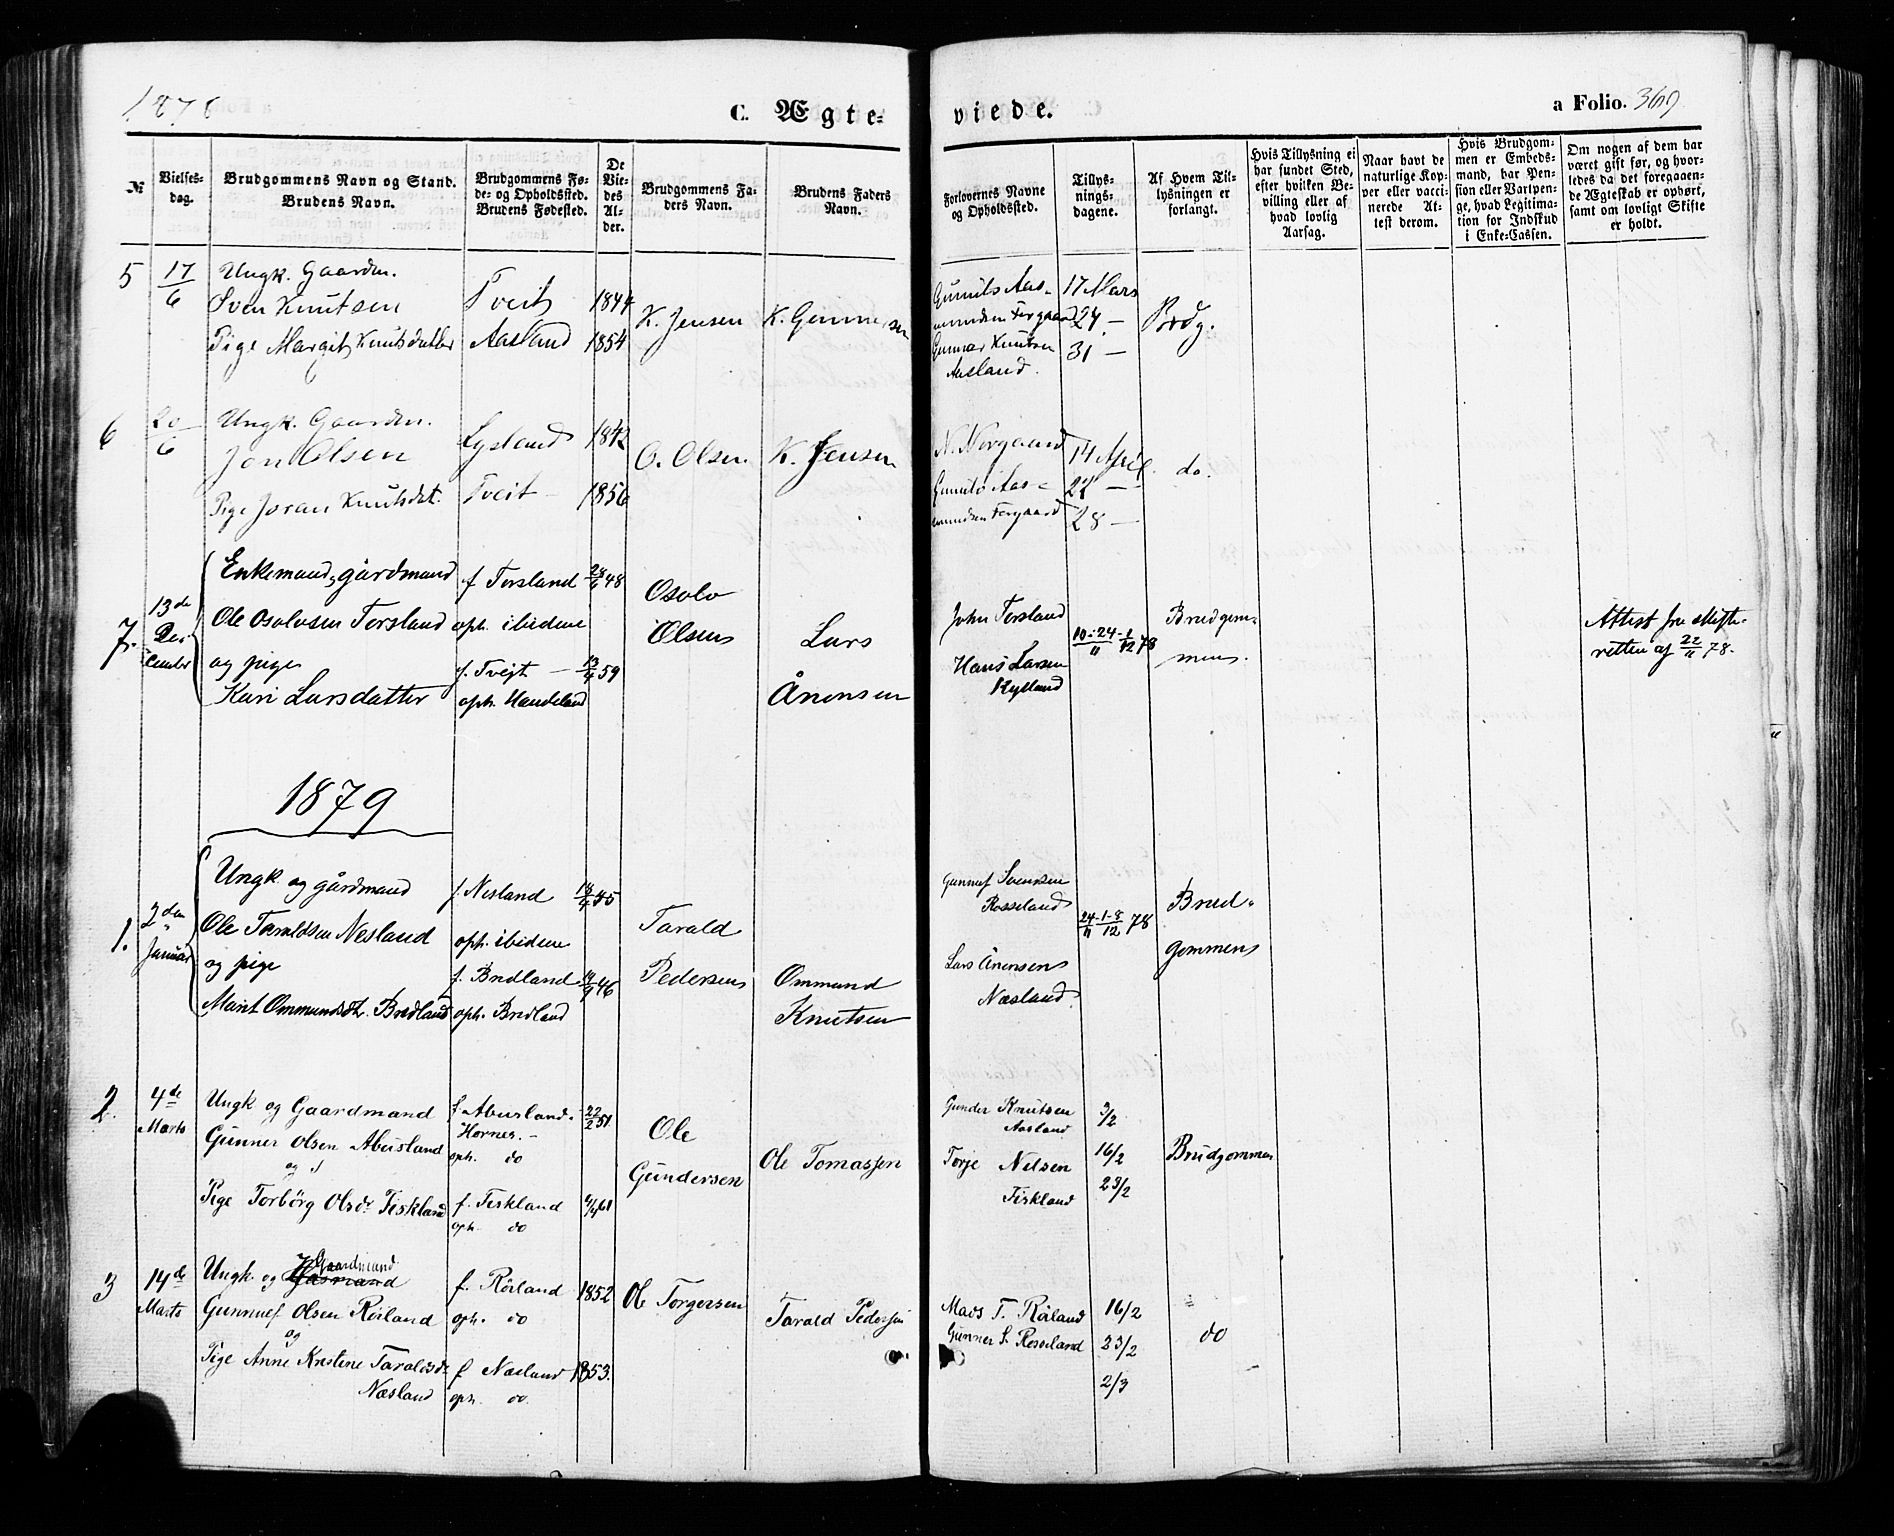 1878
C. Ægteviede.
a Folio. 369
№
Vielsesdag.
Brudgommens Navn og Stand.
Brudens Navn.
Brudgommens Føde- og Opholdssted.
Brudens Fødested.
De Viedes Alder.
Brudgommens Faders Navn.
Brudens Faders Navn.
Forlovernes Navne og Opholdssted.
Tillysningsdagene.
Af Hvem Tillysningen er forlangt.
Hvis Tillysning ei har fundet Sted, efter hvilken Bevilling eller af hvad lovlig Aarsag.
Naar havt de naturlige Kopper eller vaccinerede Attest derom.
Hvis Brudgommen er Embedsmand, har Pension eller Vartpenge, hvad Legitimation for Indskud i Enke-Cassen.
Om nogen af dem har været gift før, og hvorledes da det foregaaende Ægteskab er ophørt, samt om lovligt Skifte er holdt.
5 17/6 Ungk. Gaardm.
Sven Knutsen Tveit 1844
Pige Margit Knutsdatter Aasland 1854
K. Jensen K. Gunnersen
Gunuls Aasmundsen Fergaard
Gunnar Knutsen
Aasland.
17 Mars
24 —
31 —
Brdg.
6 20/6 Ungk. Gaardm.
Jon Olsen Lysland 1842
Pige Joran Knutsdat. Tveit 1856
O. Olsen K. Jensen
N. Norgaard
Gunulv Aasmundsen Fergaard
14 April.
22 —
28 —
do.
7. 13de December
Enkemand, gårdmand f Torsland 28/6 48
Ole Osolvsen Torsland oph. ibidem
og pige f. Tvejt — 13/4 59
Kari Larsdatter oph. Handeland
Osolv
Olsen
Lars
Ånensen
John Torsland
Hans Larsen
Rylland
10-24/11 - 1/12 78
Brudgommens.
Attest fra skifteretten af 22/11 78.
1879
1. 2den Januar
Ungk. og gårdmand f. Nesland 14/4 55
Ole Taraldsen Nesland oph. ibidem
og pige f. Bredland 14/9 46
Marit Ommundsdtr. Bredland oph. Bredland
Tarald
Pedersen
Ommund
Knutsen
Gunnuf Svensen
Rosseland
Lars Ånensen
Næsland
24/11 - 1-8/12 78
Brudgommens
2. 4de Marts
Ungk og Gaardmand f. Abusland
Hornes. 22/2 51
Gunner Olsen Abusland oph. do
og
Pige Torbörg Olsdr Fiskland f. Fiskland 9/4 61
oph. do
Ole
Gundersen
Ole Tomassen
Gunder Knutsen
Aasland
Torje Nilsen
Fiskland
3/2
16/2
23/2
Brudgommen
3 14de Marts
Ungk. og Gaardmand f. Röiland 1852
Gunnuf Olsen Röiland oph. do
og
Pige Anne Kristine Taraldsdr f Næsland 1853.
Næsland oph. do.
Ole Torgersen
Tarald Pedersen
Mads T. Röiland
Gunner S. Rosseland
16/2
23/2
2/3
do